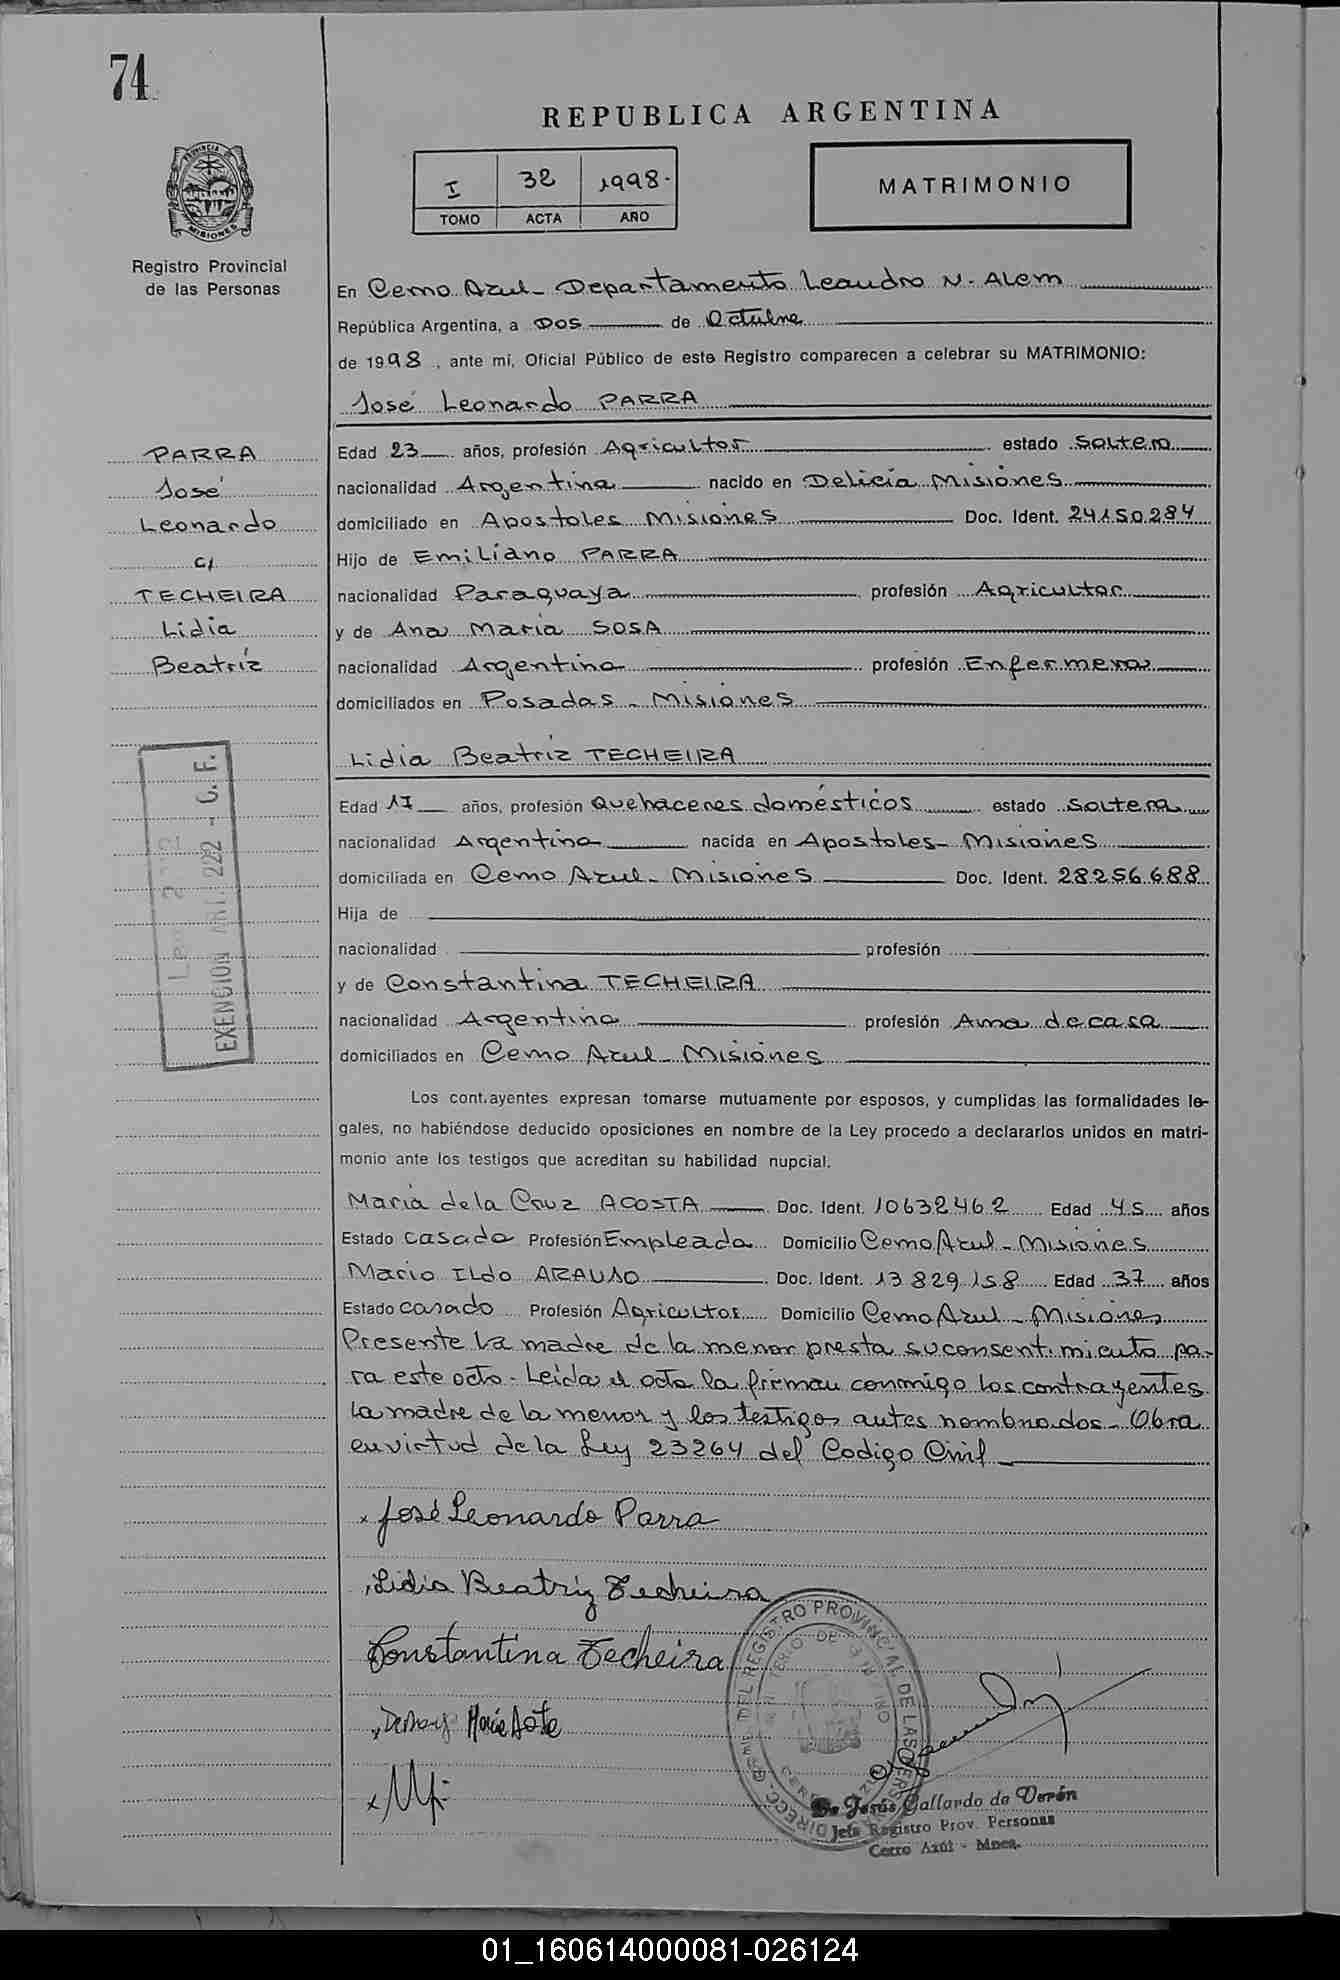 74
REPUBLICA ARGENTINA
I 32 1998.
TOMO ACTA AÑO
MATRIMONIO
PROVINCIA DE
MISIONES
Registro Provincial
de las Personas
En Cerro Azul - Departamento Leandro N. Alem
República Argentina, a Dos de Octubre
de 1998, ante mí, Oficial Público de este Registro comparecen a celebrar su MATRIMONIO:
José Leonardo PARRA
PARRA
José
Leonardo
c/
TECHEIRA
Lidia
Beatríz
Edad 23 años, profesión Agricultor estado Soltero
nacionalidad Argentina nacido en Delicia Misiones
domiciliado en Apostoles Misiones Doc. Ident. 24.150.284
Hijo de Emiliano PARRA
nacionalidad Paraguaya profesión Agricultor
y de Ana María SOSA
nacionalidad Argentina profesión Enfermera
domiciliados en Posadas - Misiones
Lidia Beatríz TECHEIRA
Edad 17 años, profesión Quehaceres domésticos estado Soltera
nacionalidad Argentina nacida en Apostoles - Misiones
domiciliada en Cerro Azul - Misiones Doc. Ident. 28.256.688
Hija de
nacionalidad profesión
y de Constantina TECHEIRA
nacionalidad Argentina profesión Ama de casa
domiciliados en Cerro Azul - Misiones
EXENCION ART. 222 - C. F.
Los cont.ayentes expresan tomarse mutuamente por esposos, y cumplidas las formalidades le-
gales, no habiéndose deducido oposiciones en nombre de la Ley procedo a declararlos unidos en matri-
monio ante los testigos que acreditan su habilidad nupcial.
María de la Cruz ACOSTA Doc. Ident. 10632462 Edad 45 años
Estado Casada Profesión Empleada Domicilio Cerro Azul - Misiones
Mario Ildo ARAUJO Doc. Ident. 13829158 Edad 37 años
Estado casado Profesión Agricultor Domicilio Cerro Azul - Misiones
Presente la madre de la menor presta su consentimiento pa-
ra este acto - Leída el acta la firman conmigo los contrayentes
la madre de la menor y los testigos antes nombrados - Obra
en virtud de la Ley 23264 del Codigo Civil
x José Leonardo Parra
Lidia Beatriz Techeira
Constantina Techeira
DIRECC. GRAL. DEL REGISTRO PROVINCIAL DE LAS PERSONAS
De Jesús Gallardo de Verón
Jefa Registro Prov. Personas
Cerro Azúl - Mnes.
01_160614000081-026124